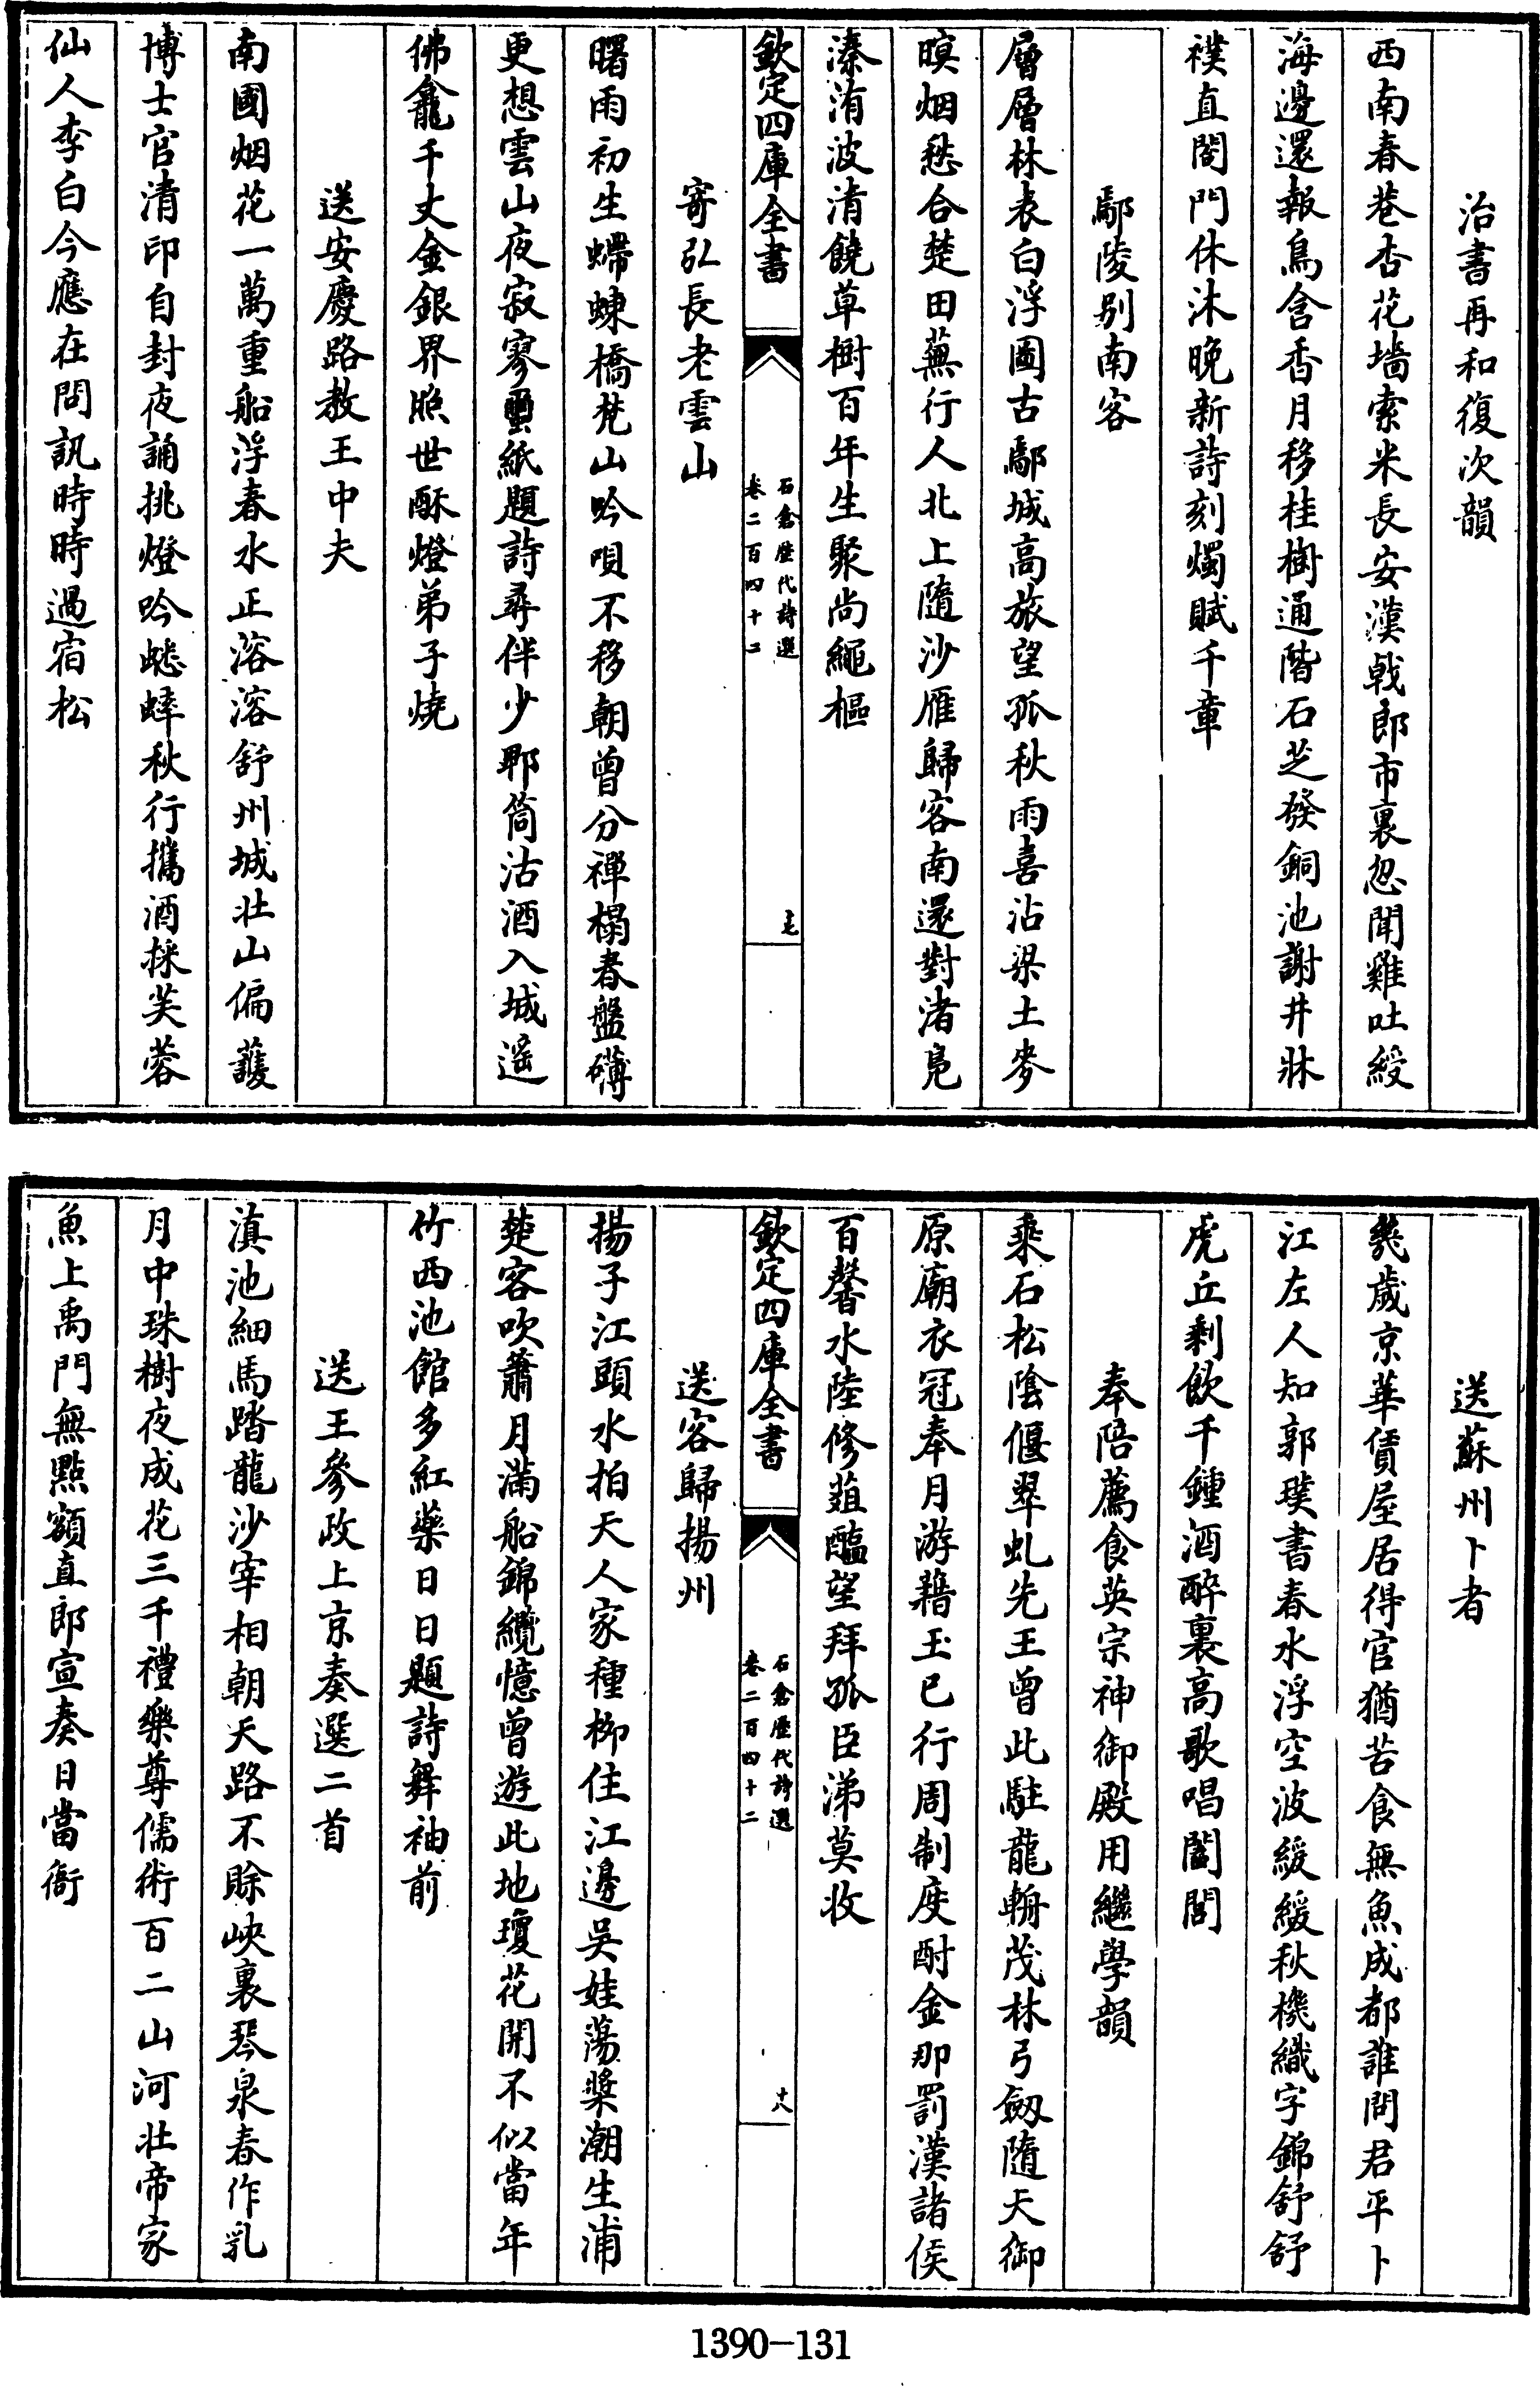 治書再和復次韻
西南春巷杏花墻索米長安漢戟郎市裏忽聞雞吐綬
海邊還報鳥含香月移桂樹通階石芝發銅池謝井牀
襆直閤門休沐晩新詩刻燭賦千章
鄢陵別南客
層層林表白浮圖古鄢城高旅望孤秋雨喜沾梁土麥
暝烟愁合楚田蕪行人北上隨沙雁歸客南還對渚鳬
溱洧波清饒草樹百年生聚尚繩樞
欽定四庫全書
石倉歷代詩選
卷二百四十二
寄弘長老雲山
曙雨初生螮蝀橋梵山吟唄不移朝曾分禪榻春盤礴
更想雲山夜寂寥蠒紙題詩尋伴少郫筒沽酒入城遥
佛龕千丈金銀界照世酥燈弟子燒
送安慶路教王中夫
南國烟花一萬重船浮春水正溶溶舒州城壯山偏䕶
博士官清印自封夜誦挑燈吟蟋蟀秋行攜酒採芙蓉
仙人李白今應在問訊時時過宿松
送蘇州卜者
幾歲京華賃屋居得官猶苦食無魚成都誰問君平卜
江左人知郭璞書春水浮空波緩緩秋機織字錦舒舒
虎丘剩飲千鍾酒醉裏高歌唱闔閭
奉陪薦食英宗神御殿用繼學韻
乘石松隂偃翠虬先王曾此駐龍輈茂林弓劒隨天御
原廟衣冠奉月游藉玉已行周制度酎金那罰漢諸侯
百馨水陸修葅醢望拜孤臣涕莫收
欽定四庫全書
石倉歷代詩選
卷二百四十二
十八
送客歸揚州
揚子江頭水拍天人家種栁住江邊吳娃蕩槳潮生浦
楚客吹簫月滿船錦纜憶曾遊此地瓊花開不似當年
竹西池館多紅藥日日題詩舞袖前
送王參政上京奏選二首
滇池細馬踏龍沙宰相朝天路不賖峽裏琴泉春作乳
月中珠樹夜成花三千禮樂尊儒術百二山河壯帝家
魚上禹門無點額直郎宣奏日當衙
1390-131